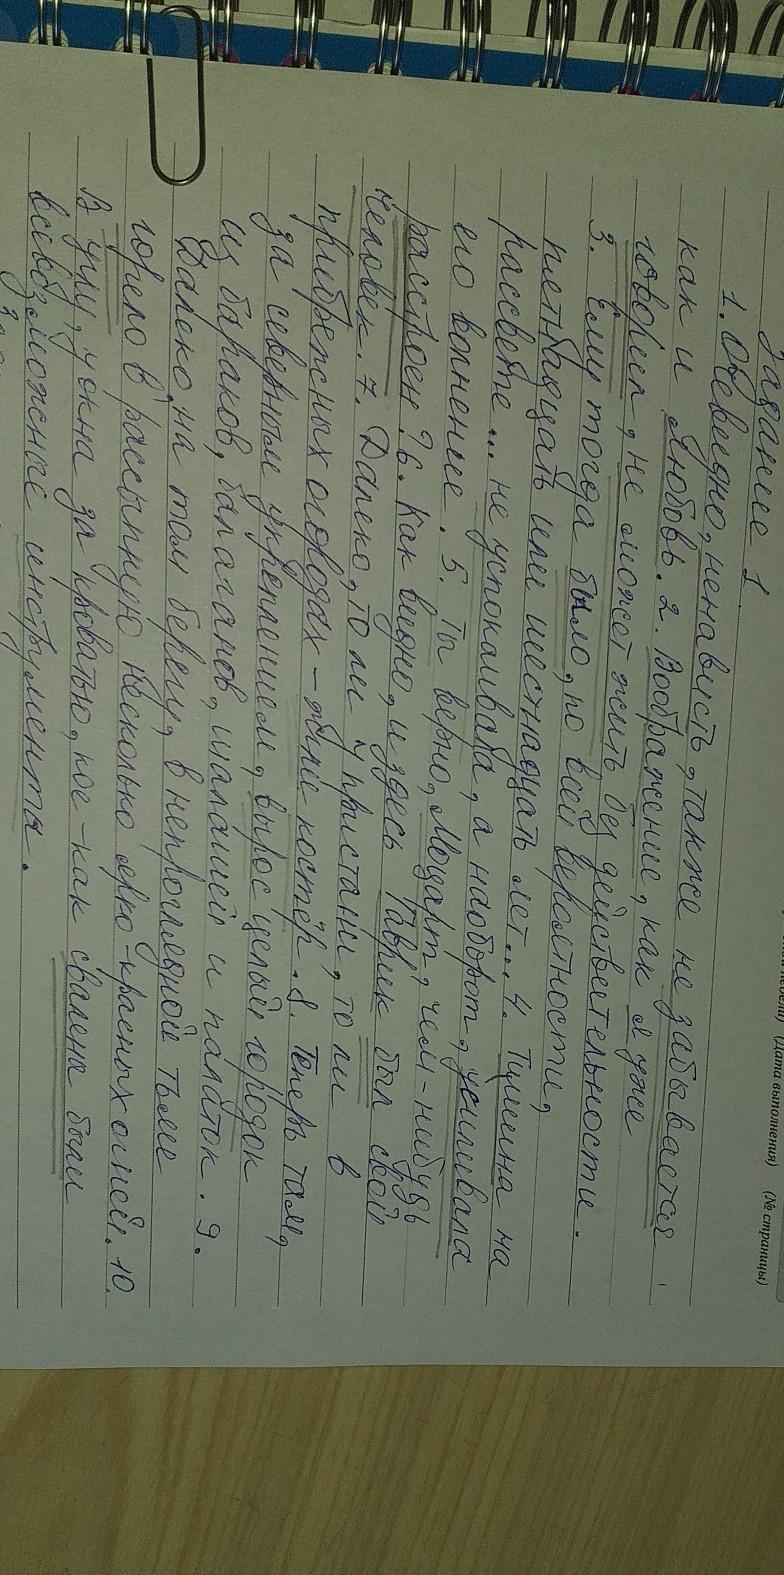 (Дата выполнения) (№ страницы)
Задание 1
1. Очевидно, ненависть, также не забывается
как и любовь. 2. Воображение, как я уже
говорил, не может жить без действительности.
3. Ему тогда было, по всей вероятности,
пятнадцать или шестнадцать лет... 4. Тишина на
рассвете... не успокаивала, а наоборот, усиливала
его волнение. 5. Ты верно, Моцарт, чем-нибудь
расстроен? 6. Как видно, и здесь Гаврик был свой
человек. 7. Далеко, то ли у пристани, то ли в
прибрежных огородах - костёр. 8. Теперь там,
за северным укреплением, вырос целый городок
из бараков, балаганов, шалашей и палаток. 9.
Далеко, на том берегу, в непроглядной тьме
горело в рассыпную несколько ярко-красных огней. 10.
В углу, у окна за кроватью, кое-как свалены были
всевозможные инструменты.